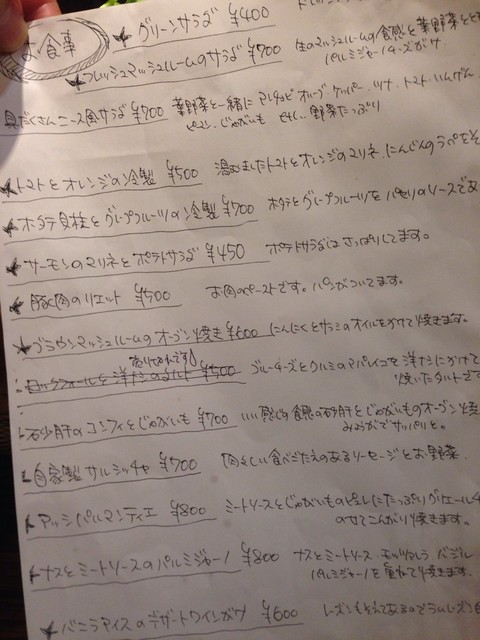 お食事
グリーンサラダ ¥400
フレッシュマッシュルームのサラダ ¥700 生のマッシュルームの食感と葉野菜と
パルミジャーノチーズが
具だくさんニース風サラダ ¥700 葉野菜と一緒に アンチョビ オリーブ・ケッパー・ツナ・トマト・いんげん
ピーマン・じゃがいも 野菜たっぷり
トマトとオレンジの冷製 ¥500 湯むきしたトマトとオレンジのマリネ、にんじんのラペを
ホタテ貝柱とグレープフルーツの冷製 ¥700 ホタテとグレープフルーツを パセリのソースで
サーモンのマリネとポテトサラダ ¥450 ポテトサラダは さっぱりしてます。
豚肉のリエット ¥500 お肉のペーストです。パンがついてます。
ブラウンマッシュルームのオーブン焼き ¥600 にんにくとサラミのオイルをかけて焼きます。
売りきれです
ロックフォールと洋ナシのタルト ¥500 ブルーチーズとクルミのアパレイユを洋ナシにかけて
焼いたタルトです
砂肝のコンフィとじゃがいも ¥700 いい感じの食感の砂肝とじゃがいものオーブン焼
みょうがでサッパリと。
自家製サルシッチャ ¥700 肉々しい食べごたえのあるソーセージとお野菜
アッシパルマンティエ ¥800 ミートソースとじゃがいものピュレにたっぷりグリュイエール
のせてこんがり焼きます。
ナスとミートソースのパルミジャーノ ¥800 ナスとミートソース・モッツァレラ バジル
パルミジャーノを重ねて焼きます。
バニラアイスのデザートワインがけ ¥600 レーズンもそえてあるのでラムレーズン